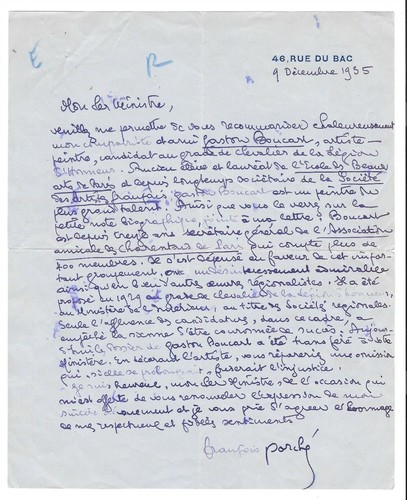 E R
46, RUE DU BAC
9 Décembre 1935
Mon cher Ministre,
veuillez me permettre de vous recommander chaleureusement
mon compatriote et ami Gaston Boucart, artiste-
peintre, candidat au grade de chevalier de la Légion
d'Honneur. Ancien élève et lauréat de l'École des Beaux-
arts de Paris et depuis longtemps sociétaire de la Société
des artistes français, Gaston Boucart est un peintre du
plus grand talent. Ainsi que vous le verrez sur la
petite note biographique jointe à ma lettre, Boucart
est depuis treize ans secrétaire général de l'Association
amicale des Charentais de Paris qui compte plus de
400 membres. Il s'est dépensé en faveur de cet important
groupement, avec un désintéressement admirable
ainsi qu'en bien d'autres œuvres régionalistes. Il a été
proposé en 1929 au grade de chevalier de la légion d'honneur,
au Ministère de l'Intérieur, au titre des Sociétés régionales.
Seule l'affluence des candidatures, dans ce cadre, a
empêché la sienne d'être couronnée de succès. Aujour-
d'hui le dossier de Gaston Boucart a été transféré à votre
Ministère. En décorant l'artiste, vous réparerez une omission
qui, si elle se prolongeait, friserait l'injustice.
Je suis heureux, mon cher Ministre, de l'occasion qui
m'est offerte de vous renouveler l'expression de mon
sincère dévouement et je vous prie d'agréer l'hommage
de mes respectueux et fidèles sentiments
François Porché